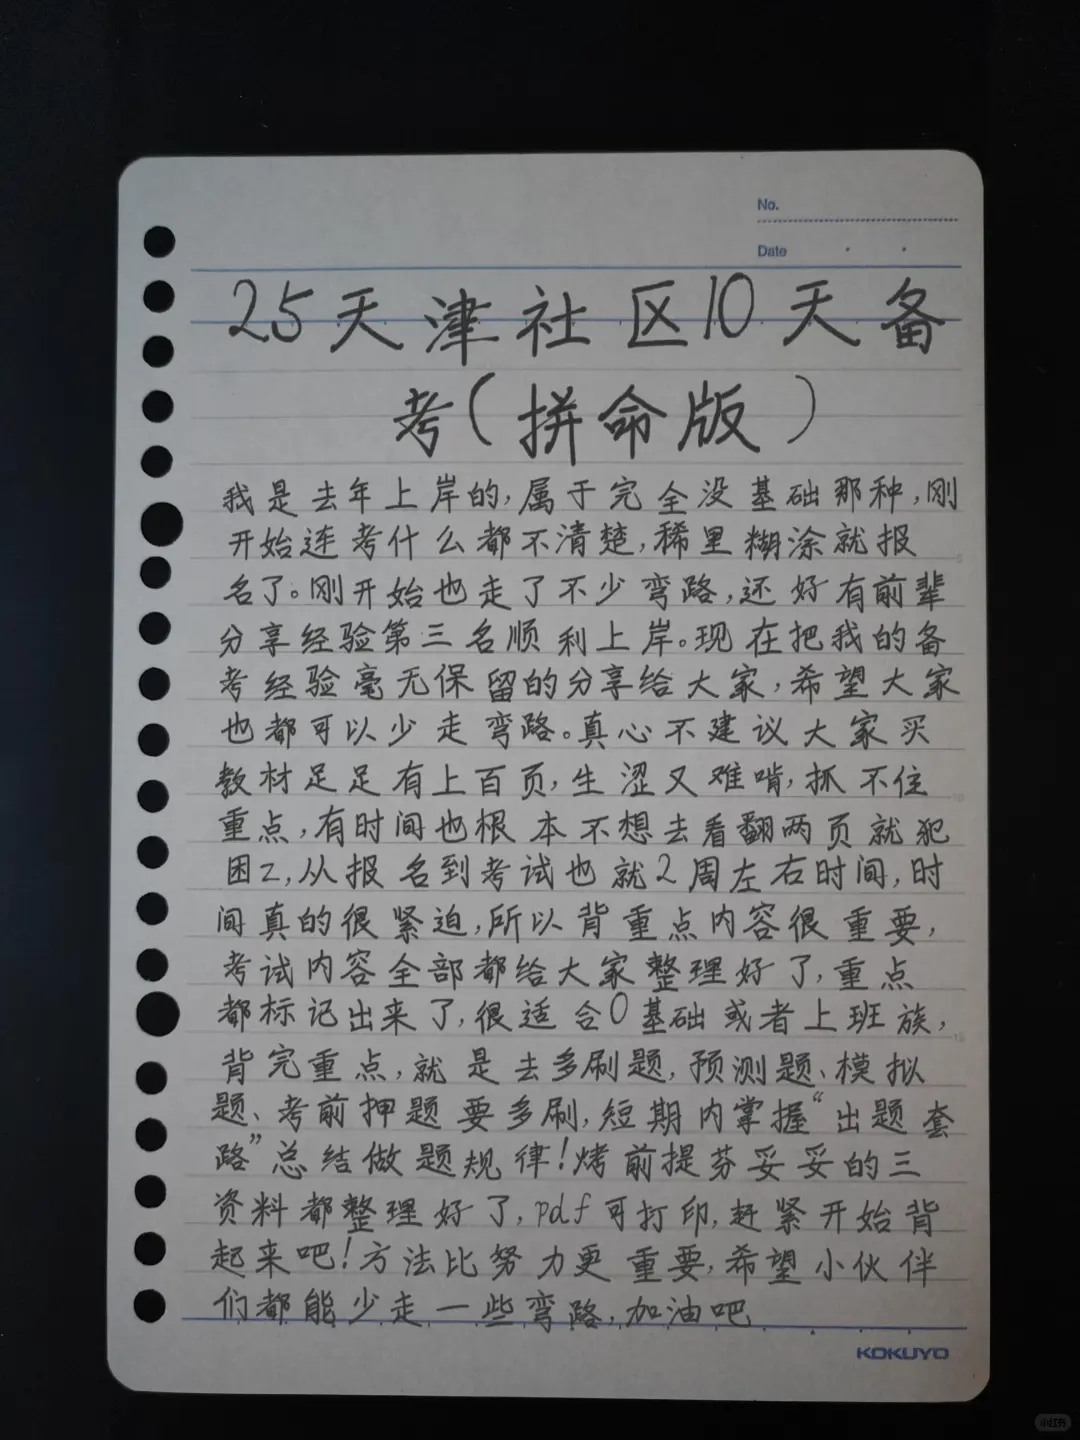 No.
Date
25天津社区10天备
考(拼命版)
我是去年上岸的,属于完全没基础那种,刚
开始连考什么都不清楚,稀里糊涂就报
名了。刚开始也走了不少弯路,还好有前辈
分享经验第三名顺利上岸。现在把我的备
考经验毫无保留的分享给大家,希望大家
也都可以少走弯路。真心不建议大家买
教材足足有上百页,生涩又难啃,抓不住
重点,有时间也根本不想去看翻两页就犯
困z,从报名到考试也就2周左右时间,时
间真的很紧迫,所以背重点内容很重要,
考试内容全部都给大家整理好了,重点
都标记出来了,很适合0基础或者上班族,
背完重点,就是去多刷题,预测题、模拟
题、考前押题要多刷,短期内掌握“出题套
路”总结做题规律!烤前提芬妥妥的三
资料都整理好了,pdf可打印,赶紧开始背
起来吧!方法比努力更重要,希望小伙伴
们都能少走一些弯路,加油吧
KOKUYO
小红书